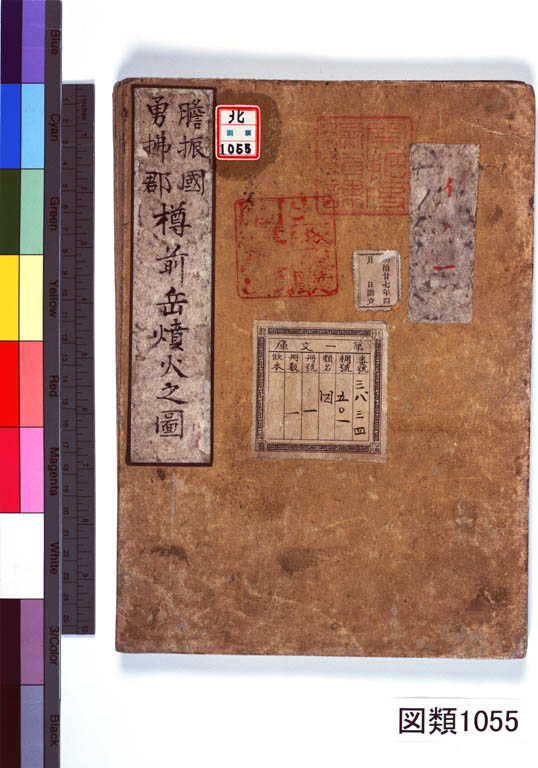 膽振國
勇拂郡
樽前岳噴火之圖
北
図類
1055
明治廿七年四
月 日調査
第一文庫
番號 三八三四
棚號 五〇一
類名 図
冊號 一
冊數 一
Blue
Cyan
Green
Yellow
Red
Magenta
White
3/Color
Black
図類1055